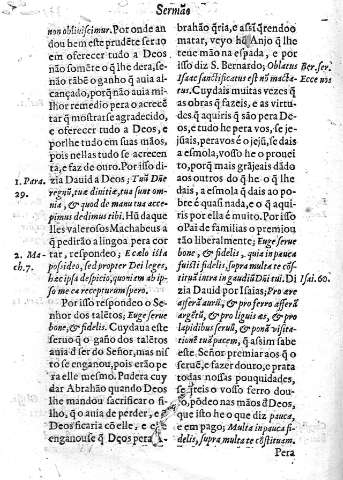 Sermão
non obliuiscimur. Por onde an
dou bem este prudẽte seruo
em oferecer tudo a Deos
não somẽte o q̃ lhe dera, se-
não tãbẽ o ganho q̃ auia al-
cançado, porq̃ não auia mi-
lhor remedio pera o acrecẽ
tar q̃ mostrarse agradecido,
e oferecer tudo a Deos, e
porlhe tudo em suas mãos,
pois nellas tudo se acrecen
ta, e faz de ouro. Por isso di-
1. Para. 29.
zia Dauid a Deos; Tuũ Dñe
regnũ, tuæ diuitiæ, tua sunt om-
nia, & quod de manu tua acce-
pimus dedimus tibi. Hũ daque
lles valerosos Machabeus a
que pedirão a lingoa pera cor
2. Ma- ch. 7.
tar, respondeo; E cælo ista
possideo, sed propter Dei leges,
hæc ipsa despicio, quoniam ab ip-
so me ea recepturum spero.
Por isso respondeo o Se-
nhor dos talẽtos; Euge serue
bone, & fidelis. Cuydaua este
seruo q̃ o gaño dos talẽtos
auia d ser do Señor, mas niſ-
to se enganou, pois erão pe
ra elle mesmo. Pudera cuy
dar Abrahão quando Deos
lhe mandou sacrificar o fi-
lho, q̃ o auia de perder, e q̃
Deos ficaria cõ elle, e e
enganouse q̃ Deos pera
brahão q̃ria, e assi q̃rendoo
matar, veyo hũ Anjo q̃ lhe
teue mão na espada, e por
isso diz S. Bernardo; Oblatus
Ber. ser.
Isaac sanctificatus est nõ macta-
Ecce nos
tus. Cuydais muitas vezes q̃
as obras q̃ fazeis, e as virtu-
des q̃ aquiris q̃ são pera De-
os, e tudo he pera vos, se je-
juais, pera vos é o jejũ, se dais
a esmola, vosso he o prouei
to, porq̃ mais grãjeais dãdo
aos outros do q̃ he o q̃ lhe
dais, a esmola q̃ dais ao po-
bre é quasi nada, e o q̃ aqui-
ris por ella é muito. Por isso
o Pai de familias o premiou
tão liberalmente; Euge serue
bone, & fidelis, quia in pauca
fuisti fidelis, supra multa te cõs-
tituã intra in gaudiũ Dñi tui. Di
Isai. 60.
zia Dauid por Isaias; Pro ære
afferã aurũ, & pro ferro afferã
argẽtũ, & pro liguis æs, & pro
lapidibus ferrũ, & ponã visita-
tionẽ tuã pacem, q̃ assim sabe
este. Señor premiar aos q̃ o
seruẽ, e fazer douro, e prata
todas nossas pouquidades,
se feitos o vosso ferro dou-
ro, põdeo nas mãos d Deos,
que isto he o que diz pauca,
e em pago; Multa in pauca fi-
delis, supra multa te cõstituam.
Pera